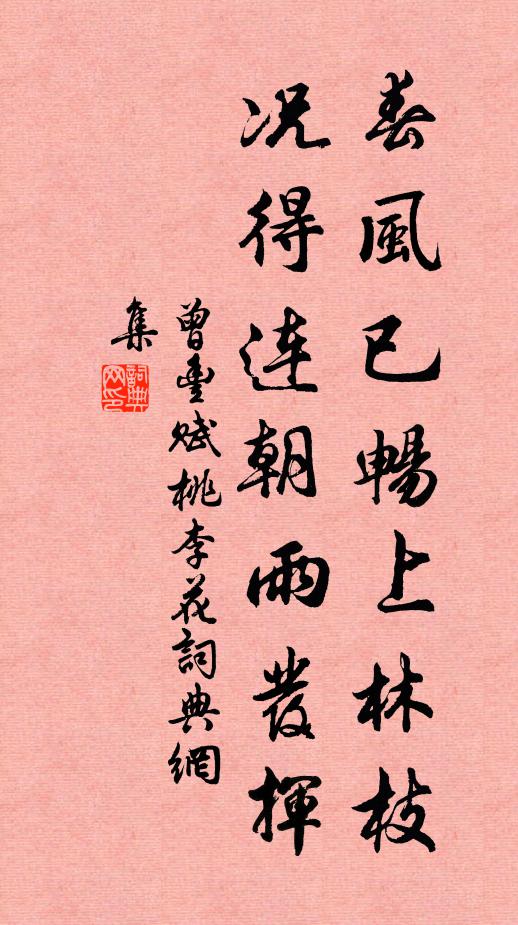 春風已暢上林枝
况得連朝雨發揮
曾豐賦桃李花詞典網
集
詞典網印